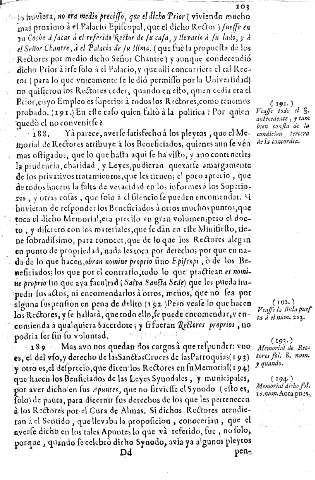 103
lo hiziera, no era medio precisso, que el dicho Prior (viviendo mucho
mas proximo à el Palacio Episcopal, que el dicho Rector) fuesse en
su Coche à sacar à el referido Rector de la casa, y llevarlo à su lado, y à
el Señor Chantre, à el Palacio de su Illma. (que fuè la propuesta de los
Rectores por medio dicho Señor Chantre) y aunque condecendiò
dicho Prior à irse solo à el Palacio, y que allì concurriera el tal Rec-
tor (para lo que vinicamente se le diò permisso por la Universidad)
no quisieron los Rectores ceder, quando en esto, quien cedia era el
Prior, cuyo Empleo es superior à todos los Rectores, como tenemos
probado. (191.) En este caso quien faltò à la politica? Por quien
quedò el no convenirse?
188. Yà parece, averse satisfecho à los pleytos, que el Me-
morial de Rectores atribuye à los Beneficiados, quienes aun se vèn
mas ostigados, que lo que hasta aquì se ha visto, y à no contenerles
la prudencia, charidad, y Leyes, pudieran quexarse amargamente
de los privativos tratamientos, que les tienen; el poco aprecio, que
de todos hacen; la falta de veracidad en los informes à los Superio-
res, y otras cosas, que solo à el silencio se pueden encomendar. Si
huvieran de responder los Beneficiados à otros muchos puntos, que
toca el dicho Memorial, era preciso en gran volumen; pero el doc-
to, y discreto con los materiales, que se dàn en este Manifiesto, tie-
ne sobradissimo, para conocer, que de lo que los Rectores alegan
en punto de propriedad, nada les toca por derecho; por que en na-
da de lo que hacen, obran nomine proprio sino Episcopi, ò de los Be-
neficiados; los que por el contrario, todo lo que practican es nomi-
ne proprio sin que aya facultad (Salva Sancta Sede) que les pueda im-
pedir sus actos, ni encomendarlos à otros, menos, que no sea por
alguna suspension en pena de delito (192.) Pero vease lo que hacen
los Rectores, y se hallarà, que todo ello, se puede encomendar, y en-
comienda à qualquiera Sacerdote; y si fueran Rectores proprios, no
podria ser sin su voluntad.
189. Mas avn nos quedan dos cargos à que responder: vno
es, el del vso, y derecho de las Santas Cruces de las Parroquias (193)
y otro es, el desprecio, que dicen los Rectores en su Memorial (194)
que hacen los Beneficiados de las Leyes Synodales, y municipales,
por aver dicho en sus Apuntes, que no sirviesse el Synodo (esto es,
solo) de pauta, para dicernir sus derechos de los que les pertenecen
à los Rectores por el Cura de Almas. Si dichos Rectores atendie-
ran à el Sentido, que llevaba la proposicion, conocerian, que el
averse dicho en los tales Apuntes lo que và referido, fue, no solo,
porque, quando se celebrò dicho Synodo, avia yà algunos pleytos
Dd pen-
(191.)
Veasse todo el §.
antecedente, y tam
bien consta de la
condicion tercera
de la concordia.
(192.)
Veasse la Nota puest
ta à el num. 223.
(193.)
Memorial de Rec-
tores fol. 8. num.
y quando.
(194.)
Memorial dicho fol.
10. num.